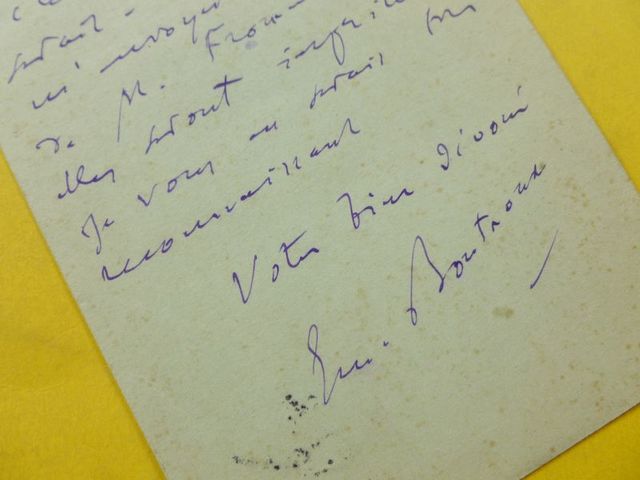 serait
m'envoyer
de M. From
elles seront imprimées
Je vous en serais
reconnaissant
Votre bien dévoué
Em. Boutroux